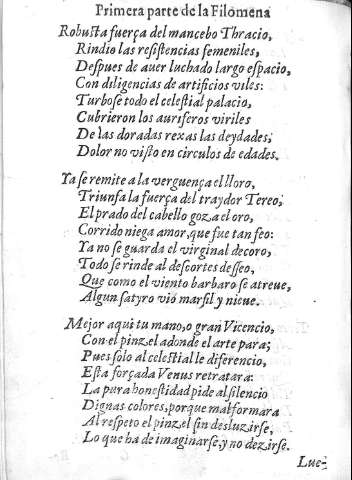 Primera parte de la Filomena
Robusta fuerça del mancebo Thracio,
Rindio las resistencias femeniles,
Despues de auer luchado largo espacio,
Con diligencias de artificios viles:
Turbose todo el celestial palacio,
Cubrieron los auriferos viriles
De las doradas rexas las deydades,
Dolor no visto en circulos de edades.
Ya se remite a la verguença el lloro,
Triunfa la fuerça del traydor Tereo,
El prado del cabello goza el oro,
Corrido niega amor, que fue tan feo:
Ya no se guarda el virginal decoro,
Todo se rinde al descortes desseo,
Que como el viento barbaro se atreue,
Algun satyro viò marfil y nieue.
Mejor aqui tu mano, o gran Vicencio,
Con el pinzel adonde el arte para;
Pues solo al celestial le diferencio,
Esta forçada Venus retratara:
La pura honestidad pide al silencio
Dignas colores, porque mal formara
Al respeto el pinzel sin desluzirse,
Lo que ha de imaginarse, y no dezirse.
Luc-